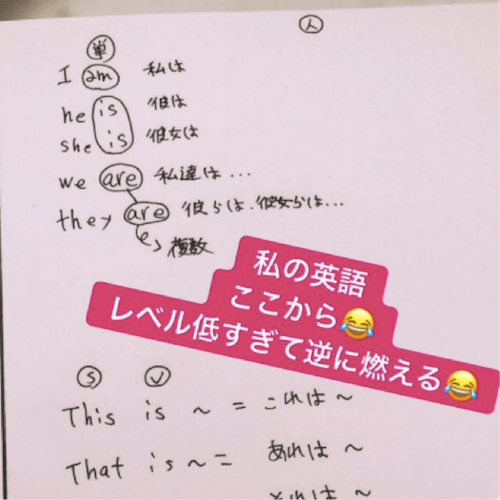 人
単
I am 私は
he is 彼は
she is 彼女は
we are 私達は...
they are 彼らは.彼女らは...
複数
私の英語
ここから😂
レベル低すぎて逆に燃える😂
S V
This is ~ = これは~
That is ~ = あれは~
それは~